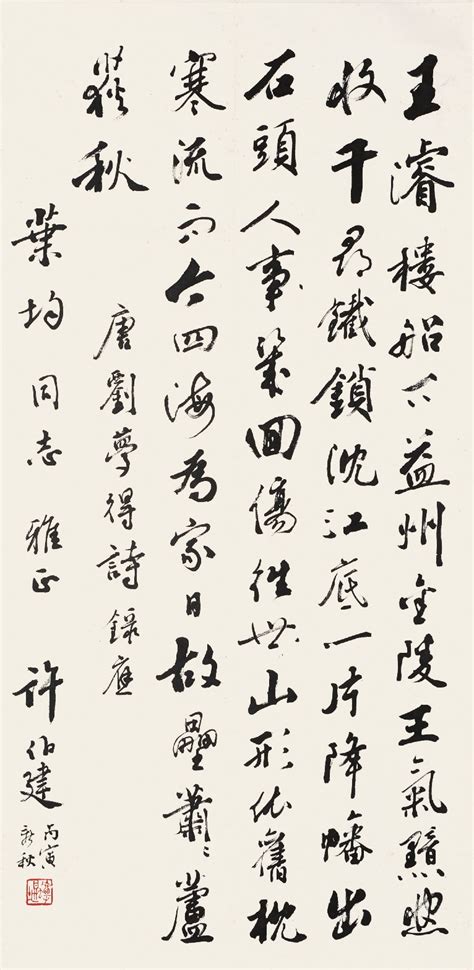 王濬樓船下益州金陵王氣黯然
收千尋鐵鎖沈江底一片降幡出
石頭人事幾回傷往世山形依舊枕
寒流而今四海為家日故壘蕭〻蘆
荻秋
唐劉夢得詩錄應
葉均同志雅正 許伯建
丙寅
新秋